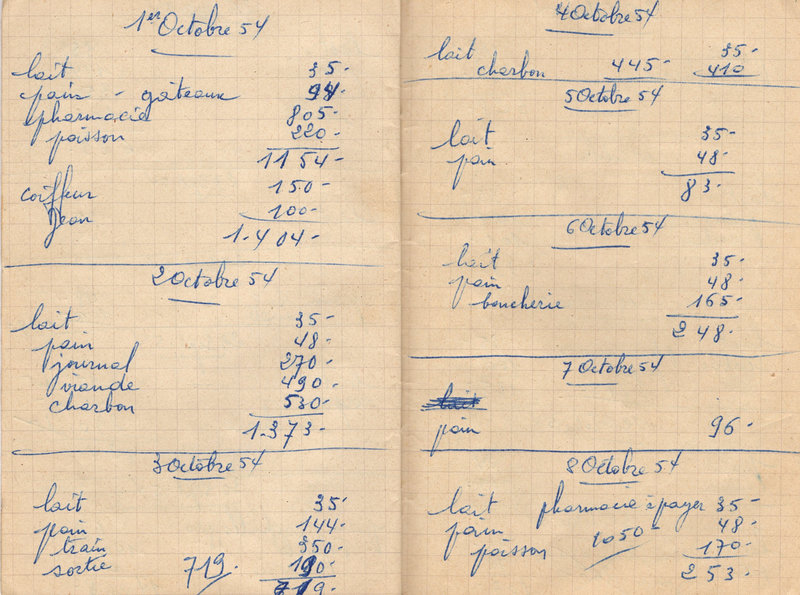 1er Octobre 54
lait 35-
pain - gâteaux 94-
pharmacie 805-
poisson 220-
1154-
coiffeur 150-
Jean 100-
1.404-
2 Octobre 54
lait 35-
pain 48-
journal 270-
viande 490-
charbon 530-
1.373-
3 Octobre 54
lait 35-
pain 144-
train 350-
sortie 190-
719- 719-
4 Octobre 54
lait 35-
charbon 445- 410
5 Octobre 54
lait 35-
pain 48-
83-
6 Octobre 54
lait 35-
pain 48-
boucherie 165-
248-
7 Octobre 54
lait
pain 96-
8 Octobre 54
lait pharmacie à payer 35-
pain 1050- 48-
poisson 170-
253-